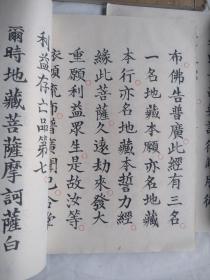 布佛告普廣此經有三名
一名地藏本願亦名地藏
本行亦名地藏本誓力經
緣此菩薩久遠劫來發大
重願利益眾生是故汝等
願流布普廣聞已合掌
利益存亡品第七
爾時地藏菩薩摩訶薩白